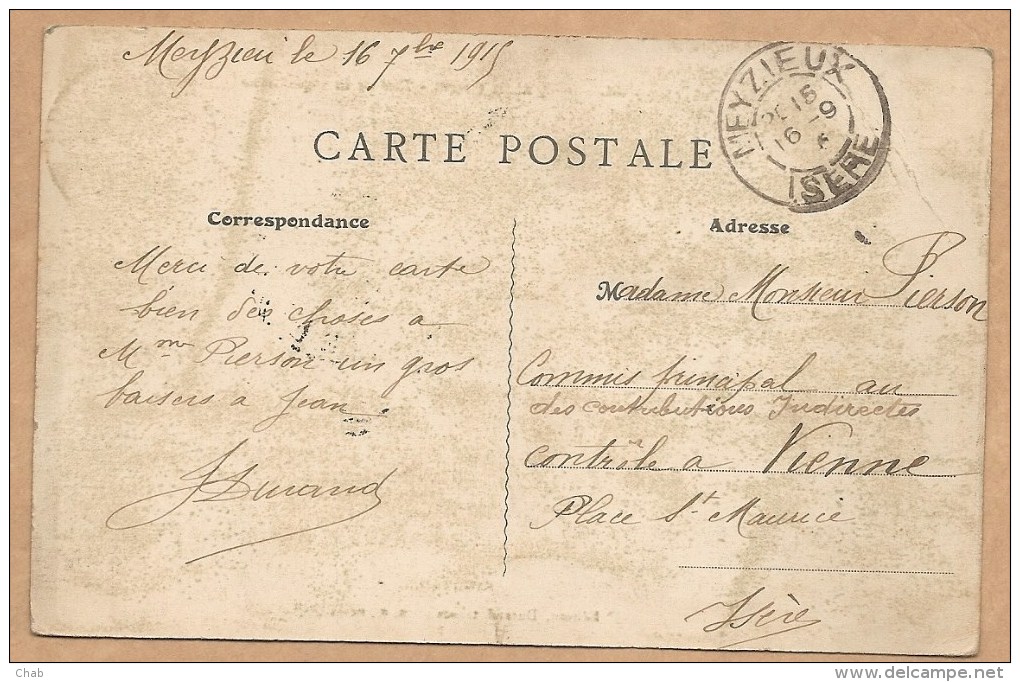 Meyzieu le 16 7bre 1915
MEYZIEUX
ISERE
CARTE POSTALE
Correspondance
Merci de votre carte
bien des choses a
Mme Pierson un gros
baisers a Jean
J Durand
Adresse
Madame Monsieur Pierson
Commis principal au
des contributions Indirectes
contrôle a Vienne
Place St Maurice
Isère
Chab
www.delcampe.net